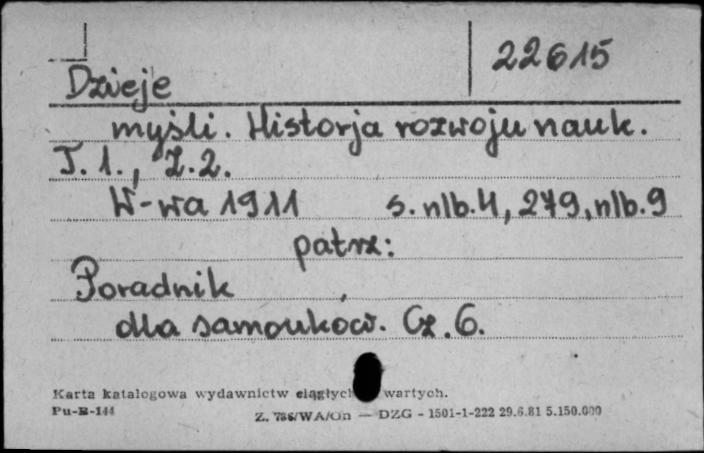 22615
Dzieje
myśli. Historja rozwoju nauk.
T. 1., Z. 2.
W-wa 1911 s. nlb. 4, 279, nlb. 9
patrz:
Poradnik
dla samouków. Cz. 6.
Karta katalogowa wydawnictw wartych.
Pu-B-144
DZG - 1501-1-222 29.6.81 5.150.000